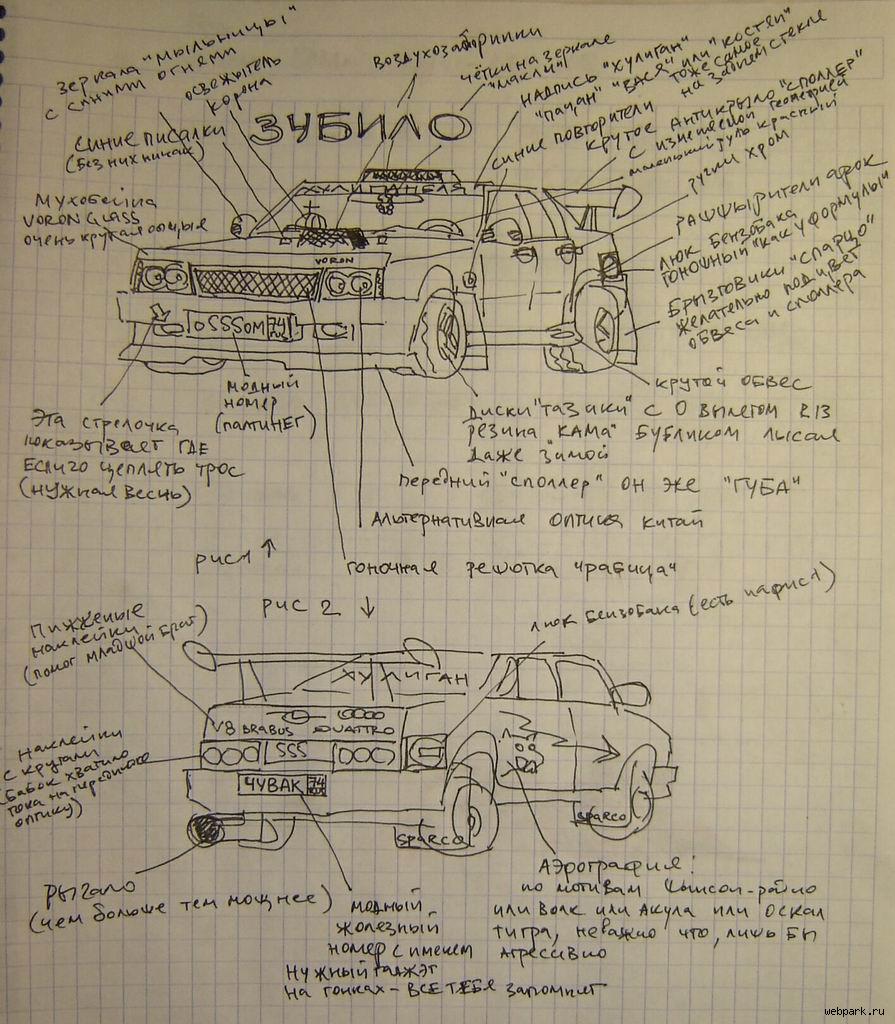 зеркала "мыльницы"
с синими огнями
освежитель
корона
воздухозаборники
чётки на зеркале
"макли"
надпись "хулиган"
"пацан" "вася" или "костян"
тоже самое
на заднем стекле
ЗУБИЛО
синие писалки
(без них никак)
синие повторители
крутое антикрыло "споллер"
с изменяемой геометрией
маленький руль красный
ручки хром
Мухобейка
VORON GLASS
очень крутая вещь
рашшырители арок
люк бензобака
гоночный "как у формулы"
Брызговики "спарцо"
желательно под цвет
обвеса и споллера
ХУЛИГАНЕЛЯ
VORON
оSSSом 74
модный
номер
(палтинег)
крутой обвес
Эта стрелочка
показывает где
если чо цеплять трос
(нужная весчь)
диски "тазики" с 0 вылетом R13
резина "КАМА" бубликом лысая
даже зимой
передний "споллер" он же "ГУБА"
Альтернативная оптика китай
гоночная решотка "рабица"
рис 1 ↑
рис 2 ↓
люк бензобака (есть на рис 1)
Пижженые
наклейки
(помог младшой брат)
ХУЛИГАН
V8 BRABUS QUATTRO
SSS
наклейки
с кругами
(бабок хватило
тока на переднюю
оптику)
ЧУВАК 74
SPARCO
SPARCO
Рыгало
(чем больше тем мощнее)
модный
жолезный
номер с именем
нужный гаджэт
на гонках - все тебя запомнят
Аэрография!
по мотивам
или волк или Акула или оскал
тигра, неважно что, лишь бы
агрессивно
webpark.ru